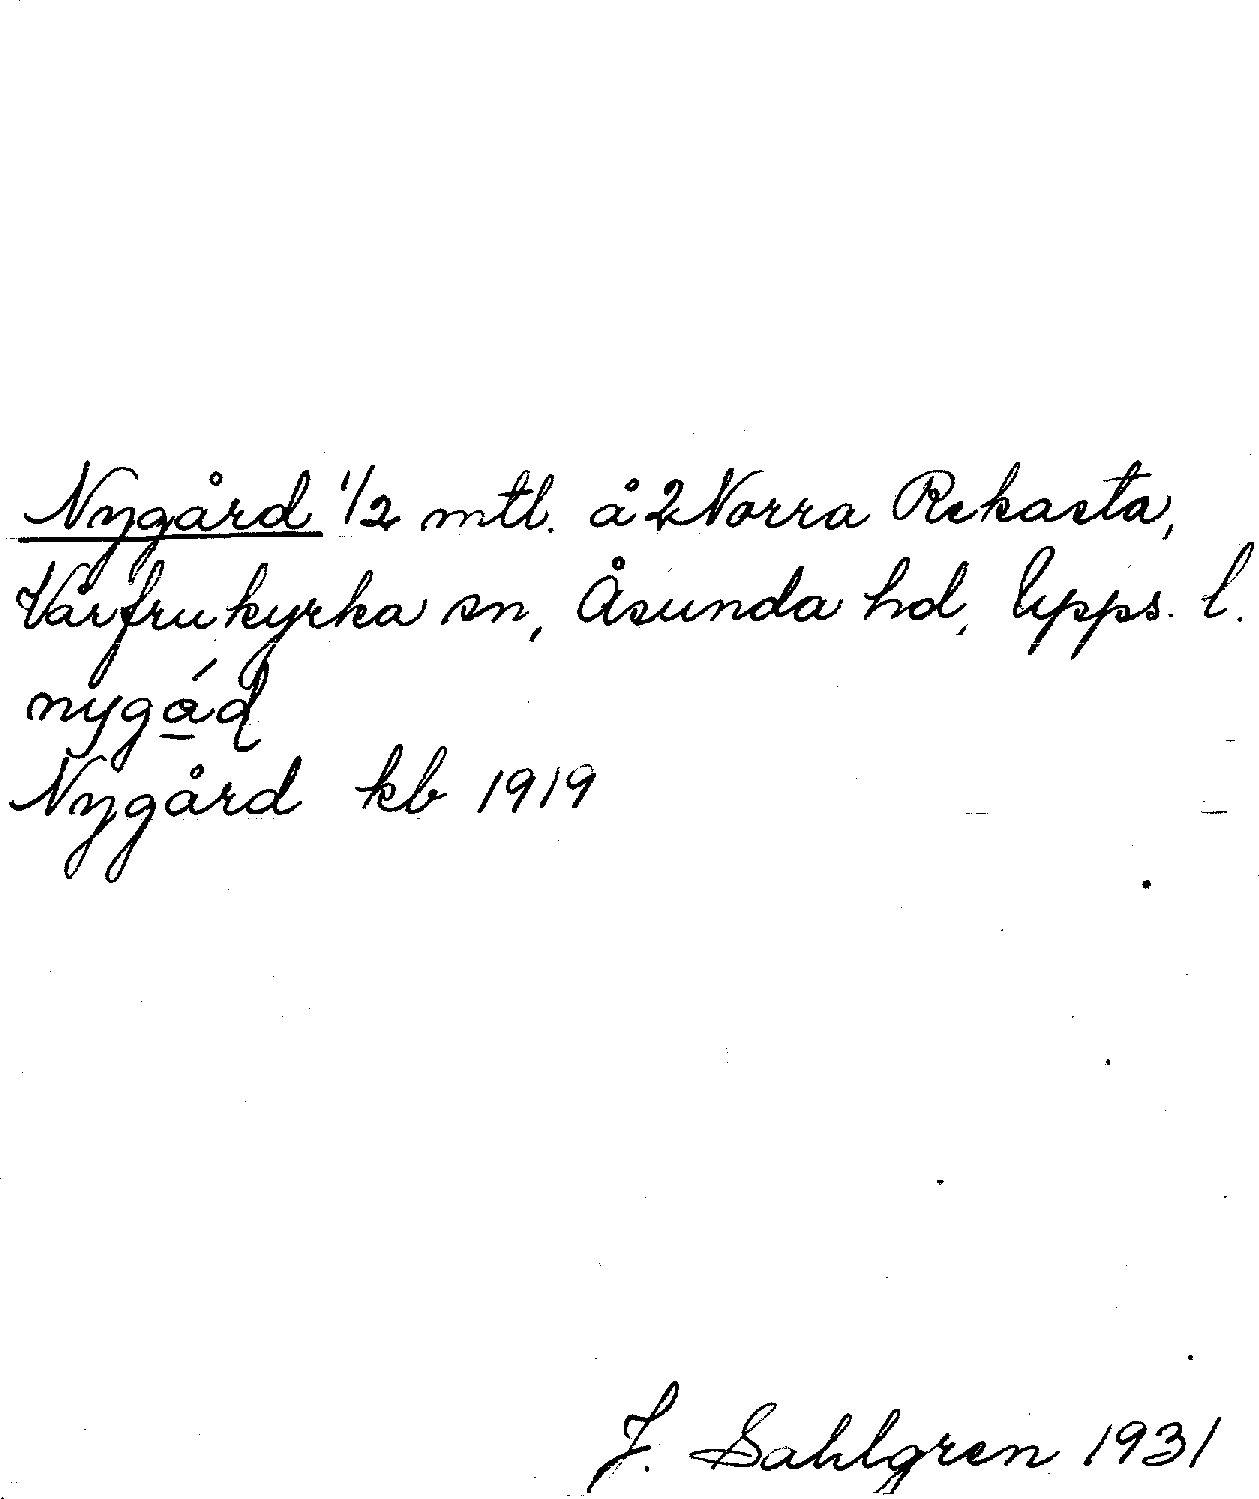 Nygård 1/2 mtl. å 2 Norra Rekasta,
Vårfrukyrka sn, Åsunda hd, Upps. l.
Nygård kb 1919
J. Sahlgren 1931